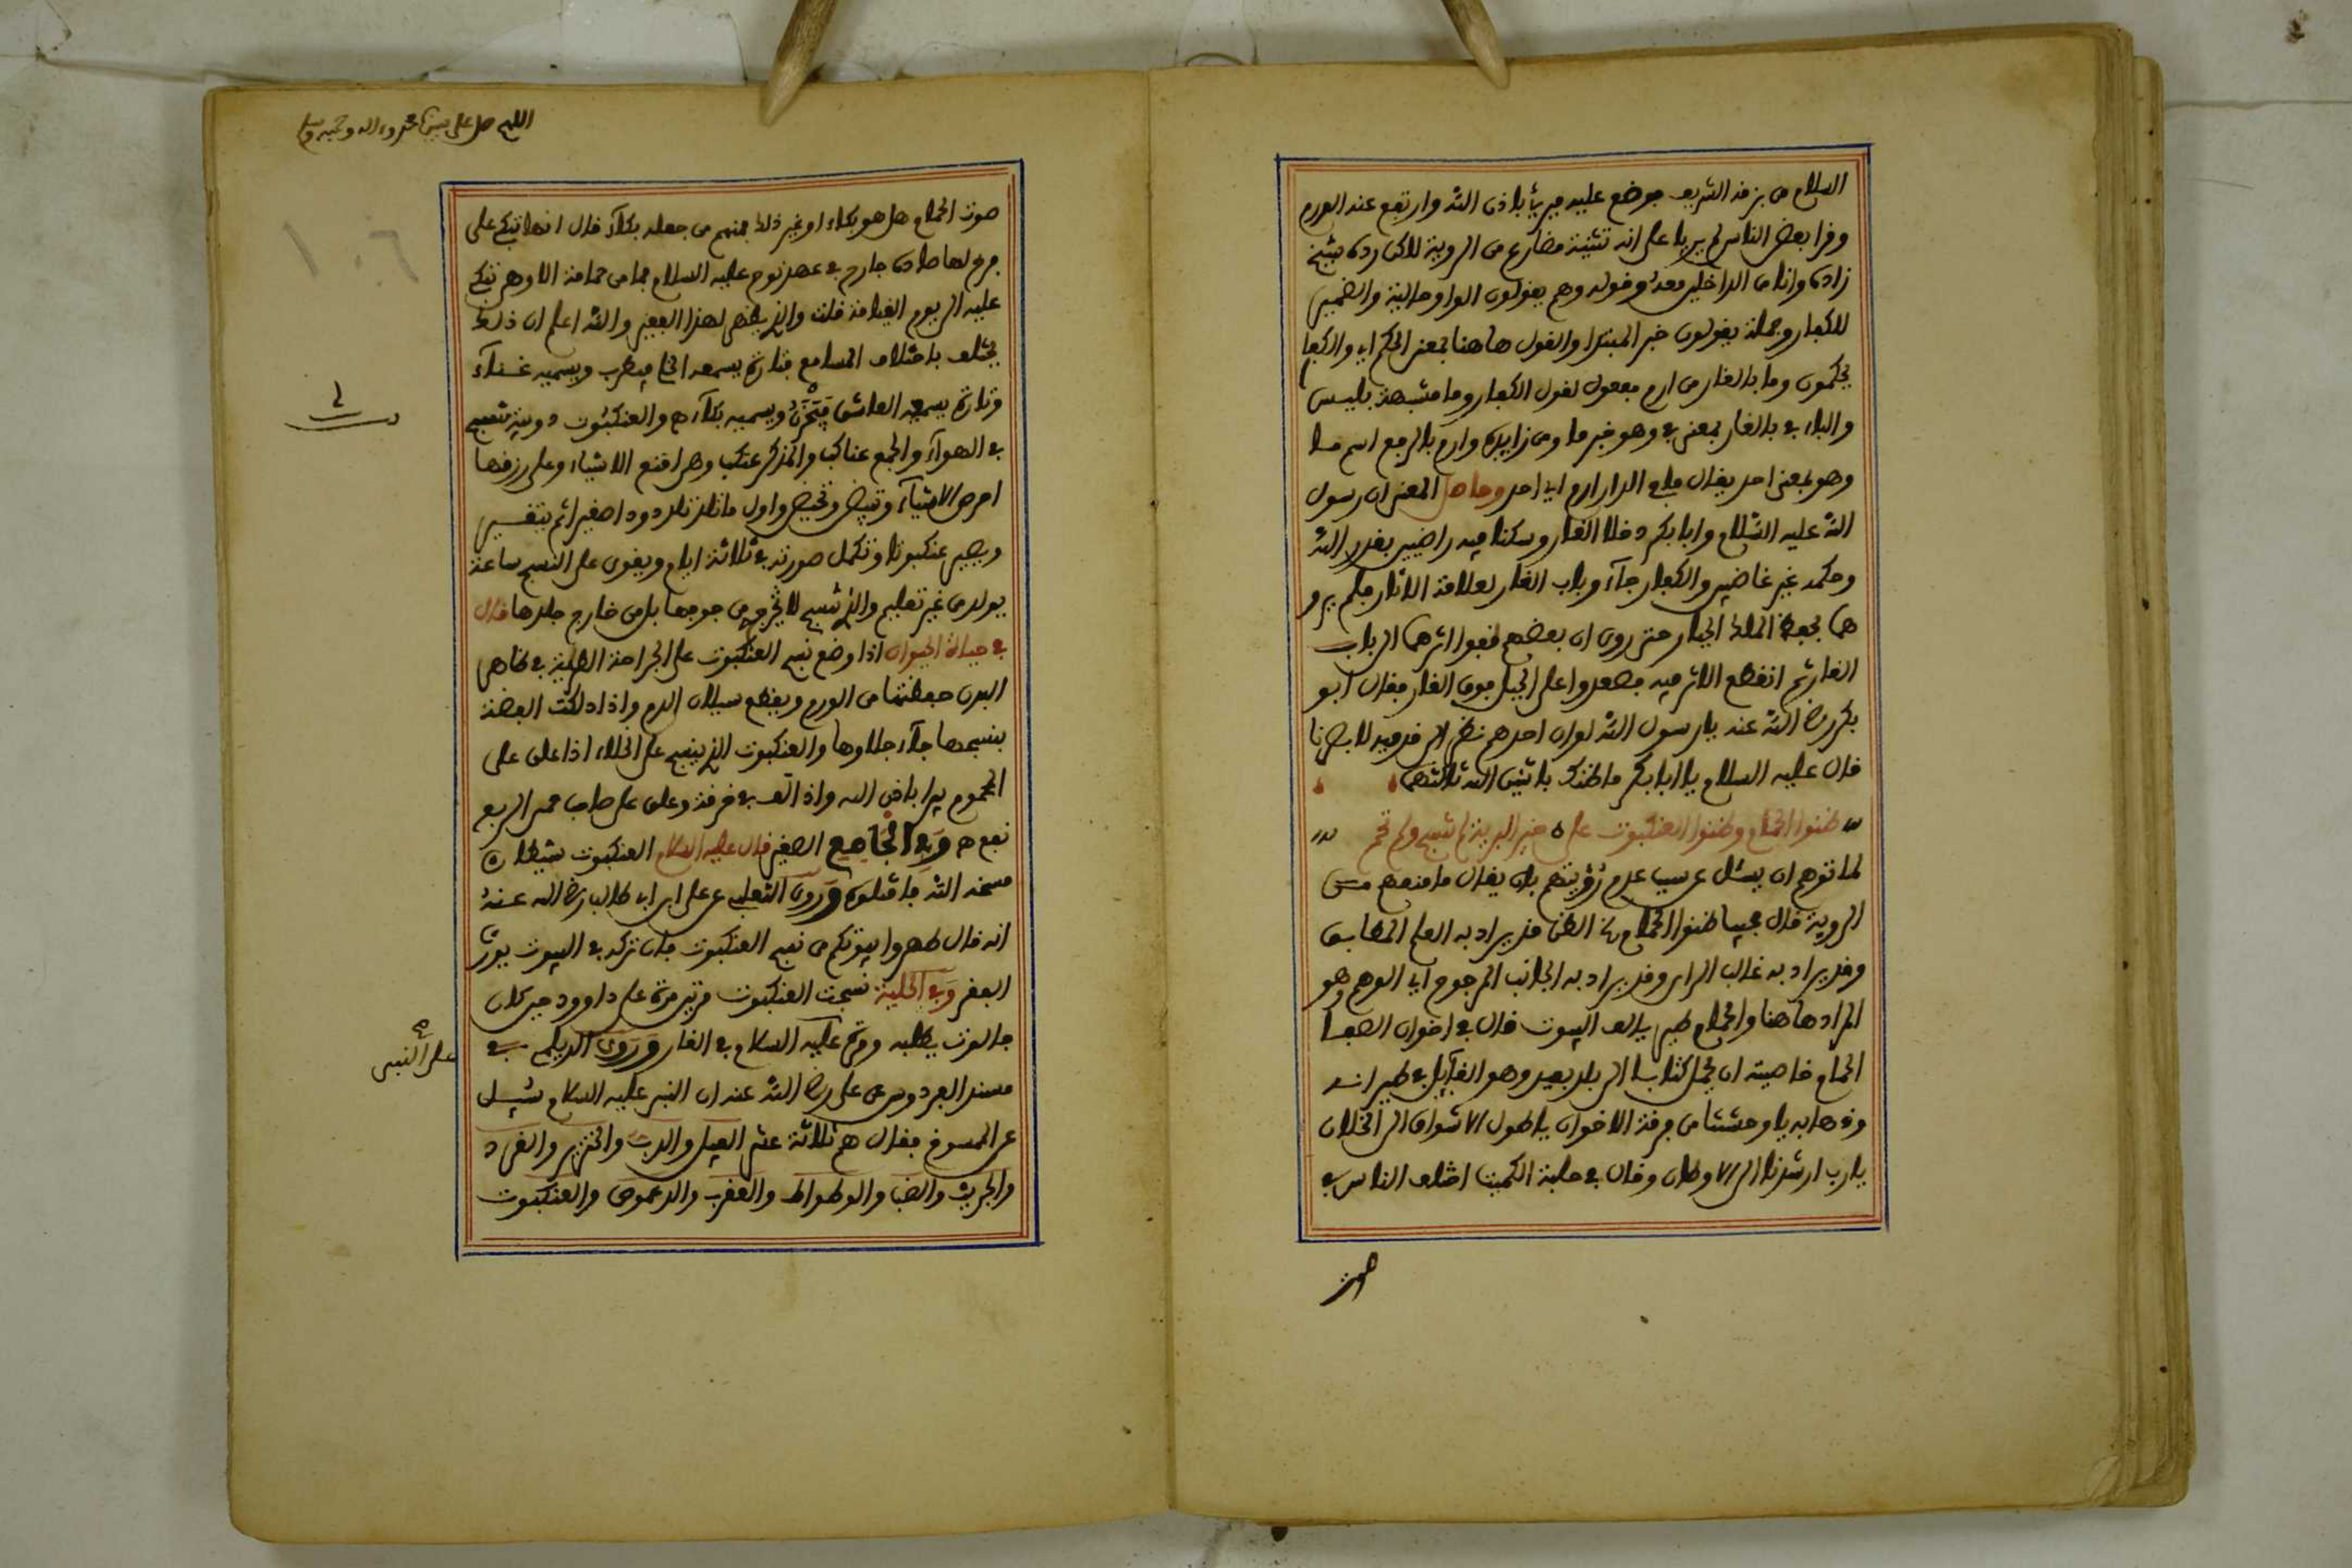 السلام من بزقه الشريف فوضع عليه فبرئا باذن الله وارتفع عنه الورم
وقرا بعض الناس لم يريا على انه تثنية مضارع من الروية لاكن رده شيخ
زاده وانا من الداخلين معه وقوله وهم يقولون الواو حالية والضمير
للكفار وجملة يقولون خبر المبتدا والقول هاهنا بمعنى الحكم اي والكفا
يحكمون وما بالغار من ارم مفعول لقول الكفار وما مشبهة بليس
والباء في بالغار بمعنى في وهو خبر ما ومن زايدة وارم بالرفع اسم ما
وهو بمعنى احد يقال ما في الدار ارم اي احد وحاصل المعنى ان رسول
الله عليه السلام وابا بكر دخلا الغار وسكنا فيه راضيين بقدر الله
وحكمه غير غاضبين والكفار جاءو باب الغار لعلامة الاثار فلم يرو
هما بحفظ الملك الجبار حتى روي ان بعضهم قفوا اثرهما الى باب
الغار ثم انقطع الاثر فيه فصعدوا على الجبل فوق الغار فقال ابو
بكر رضي الله عنه يا رسول الله لو ان احدهم نظر الى قدميه لابصرنا
قال عليه السلام يا ابا بكر ما ظنك باثنين الله ثالثهما
ظنوا الحمام وظنوا العنكبوت على ه خير البرية لم تنسج ولم تحم
لما توهم ان يسئل عن سبب عدم رؤيتهم بان يقال ما منعهم من
الروية قال مجيبا ظنوا الحمام الخ الظن قد يراد به العلم المطابق
وقد يراد به غالب الراي وقد يراد به الجانب المرجوح اي الوهم وهو
المراد هاهنا والحمام طير يالف البيوت قال في اخوان الصفا
الحمام خاصيته ان يحمل كتابا الى بلد بعيد وهو القائل في طيرانه
وذهابه يا وحشتنا من فرقة الاخوان يا طول الاشواق الى الخلان
يا رب ارشدنا الى الاوطان وقال في حلبة الكميت اختلف الناس في
صوت
اللهم صل على نبينا محمد واله وصحبه وسلم
١٠٦
صوت الحمام هل هو بكاء او غير ذلك فمنهم من جعله بكاء قال انها تبكي على
فرخ لها صاده جارح في عهد نوح عليه السلام فما من حمامة الا وهي تبكي
عليه الى يوم القيامة قلت والذي يظهر لهذا الفقير والله اعلم ان ذلك
يختلف باختلاف المسامع فتارة يسمعه الخلي فيطرب ويسميه غناء
وتارة يسمعه العاشق فيحزن ويسميه بكاء ه والعنكبوت دويبة تنسج
في الهواء والجمع عناكب والمذكر عنكب وهي اقنع الاشياء وعلى رزقها
احرص الاشياء وتبيض وتحيض واول ما تلد تلد دودا صغيرا ثم يتغير
ويصير عنكبوتا وتكمل صورته في ثلاثة ايام ويقوى على النسج ساعة
يولد من غير تعليم والذي تنسج لا يخرج من جوفها بل من خارج جلدها قال
في حياة الحيوان اذا وضع نسج العنكبوت على الجراحة الطرية في ظاهر
البدن حفظتها من الورم ويقطع سيلان الدم واذا دلكت الفضة
بنسجها جاء جلاوها والعنكبوت الذي ينسج على الخلاء اذا علق على
المحموم يبرا باذن الله واذا لف في خرقة وعلق على صاحب حمى الربع
نفع ه وفي الجامع الصغير قال عليه السلام العنكبوت شيطان
مسخه الله فاقتلوه وروى الثعلبي عن علي ابن ابي طالب رضي الله عنه
انه قال طهروا بيوتكم من نسج العنكبوت فان تركه في البيوت يورث
الفقر وفي الحلية نسجت العنكبوت مرتين مرة على داوود حين كان
جالوت يطلبه ومرة عليه السلام في الغار وروى الديلمي في
على النبي
مسند الفردوس عن علي رضي الله عنه ان النبي عليه السلام سئل
عن المسوخ فقال هم ثلاثة عشر الفيل والدب والخنزير والقرد
والجريث والضب والوطواط والعقرب والدعموص والعنكبوت